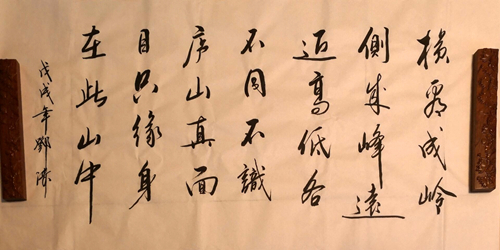 横看成岭
側成峰遠
近高低各
不同不識
庐山真面
目只緣身
在此山中
戊戌年